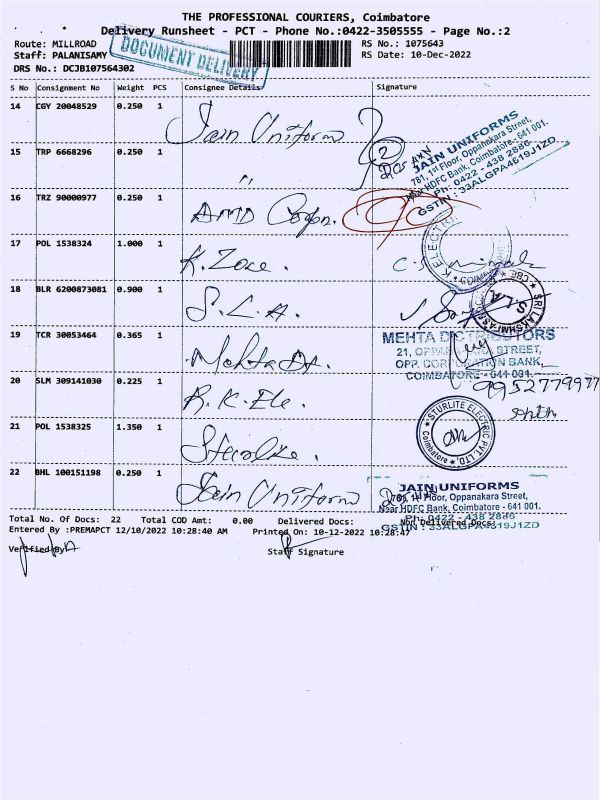 THE PROFESSIONAL COURIERS, Coimbatore
Delivery Runsheet - PCT - Phone No.:0422-3505555 - Page No.:2
Route: MILLROAD
RS No.: 1075643
Staff: PALANISAMY
RS Date: 10-Dec-2022
DRS No.: DCJB107564302
DOCUMENT DELIVERY
S No Consignment No Weight PCS Consignee Details Signature
14 CGY 20048529 0.250 1 Jain Uniform
15 TRP 6668296 0.250 1 "
2
JAIN UNIFORMS
781, 1st Floor, Oppanakara Street,
Near HDFC Bank, Coimbatore - 641 001.
Ph: 0422 - 438 2886
GSTIN : 33ALGPA4619J1ZD
16 TRZ 90000977 0.250 1 AMD Corpn.
17 POL 1538324 1.000 1 K. Zone.
18 BLR 6200873081 0.900 1 S.L.A.
SRI LAKSHMI
S.L.A.
CBE
19 TCR 30053464 0.365 1 Mehta
MEHTA DISTRIBUTORS
21, STREET,
OPP. CORPORATION BANK,
COIMBATORE - 641 001.
9952779977
20 SLM 309141030 0.225 1 R.K. Ele.
21 POL 1538325 1.350 1 Sterlite.
STURLITE ELECTRIC PVT. LTD.
Coimbatore
22 BHL 100151198 0.250 1 Jain Uniform
JAIN UNIFORMS
781, 1st Floor, Oppanakara Street,
Near HDFC Bank, Coimbatore - 641 001.
Ph: 0422 - 438 2886
GSTIN : 33ALGPA4619J1ZD
Total No. Of Docs: 22 Total COD Amt: 0.00 Delivered Docs: Non Delivered Docs:
Entered By :PREMAPCT 12/10/2022 10:28:40 AM Printed On: 10-12-2022 10:28:47
Verified By
Staff Signature